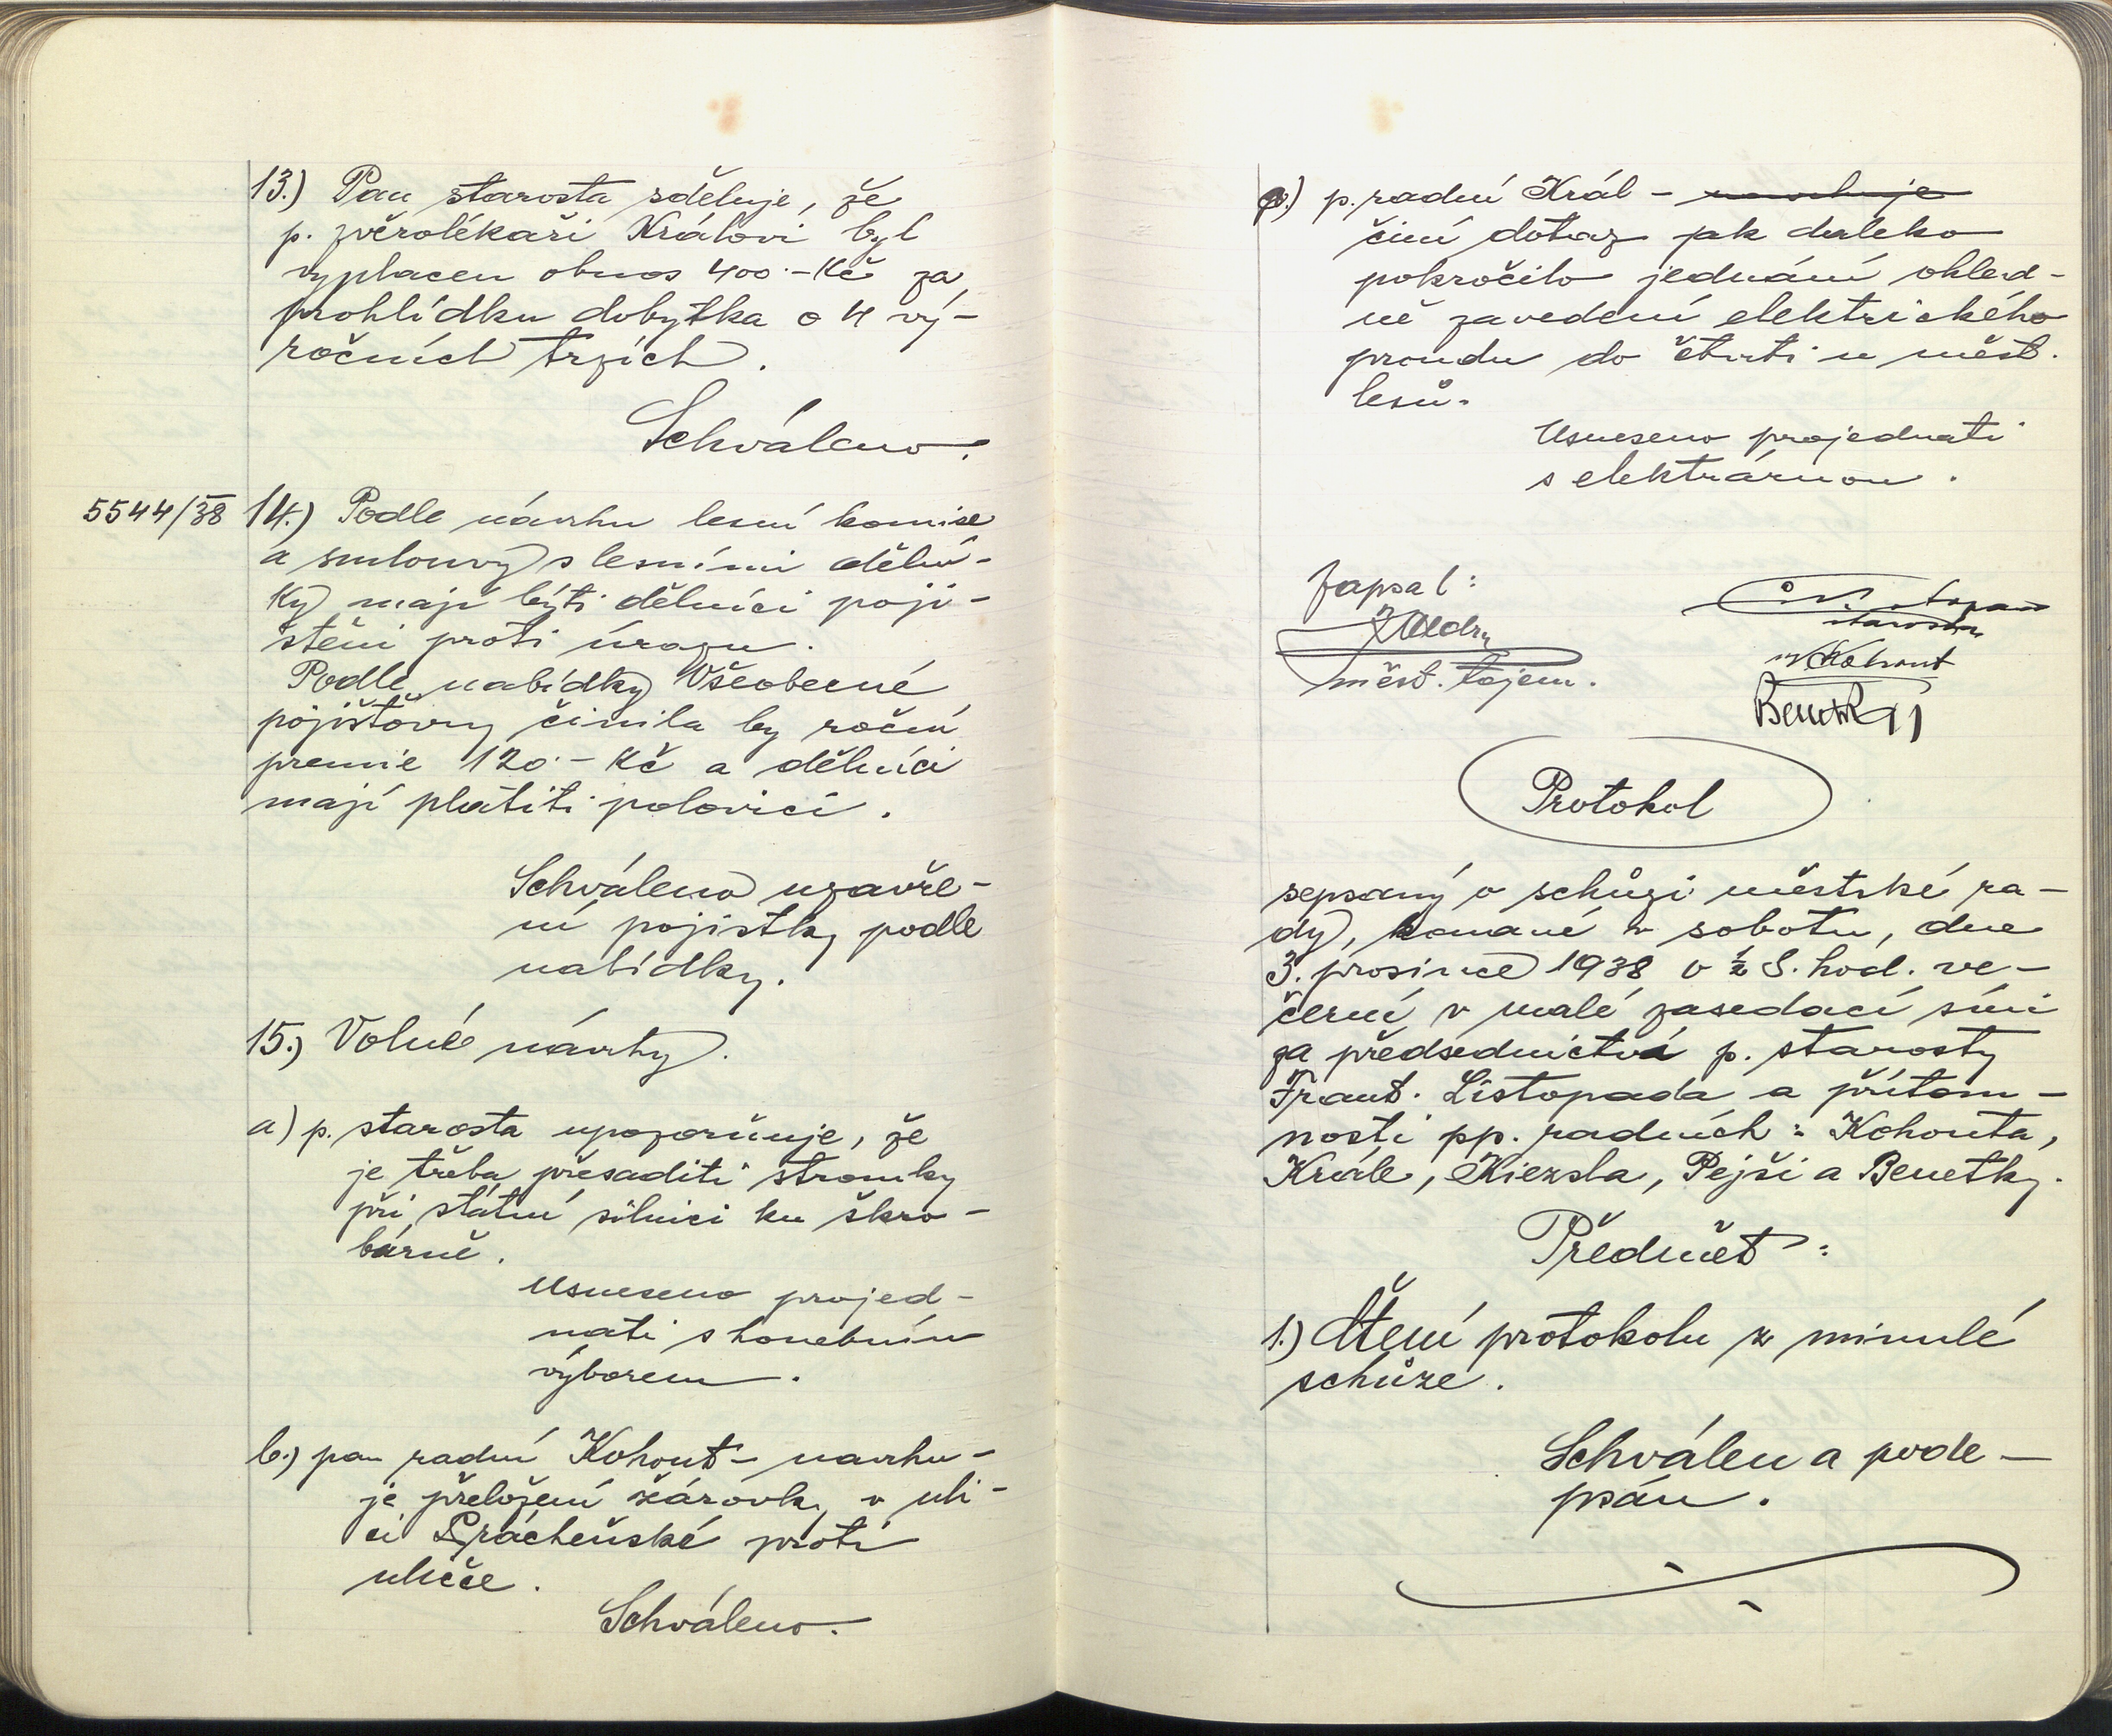 13.) Pan starosta sděluje, že
p. zvěrolékaři Královi byl
vyplacen obnos 400·- Kč za
prohlídku dobytka o 4 vý-
ročních trzích.
Schváleno.
5544/38 14.) Podle návrhu lesní komise
a smlouvy s lesními dělní-
ky mají býti dělníci poji-
štěni proti úrazu.
Podle nabídky Všeobecné
pojišťovny činila by roční
premie 120·- Kč a dělníci
mají platiti polovici.
Schváleno uzavře-
ní pojistky podle
nabídky.
15.) Volné návrhy.
a) p. starosta upozorňuje, že
je třeba přesaditi stromky
při státní silnici ku škro-
bárně.
Usneseno projed-
nati s honebním
výborem.
b.) pan radní Kohout - navrhu-
je přeložení žárovky v uli-
ci Prácheňské proti
uličce.
Schváleno.
c.) p. radní Král - navrhuje
činí dotaz jak daleko
pokročilo jednání ohled-
ně zavedení elektrického
proudu do čtvrti u měst.
lesů.
Usneseno projednati
s elektrárnou.
Zapsal:
měst. tajem.
starosta
Kohout
Benetka
Protokol
sepsaný o schůzi městské ra-
dy, konané v sobotu, dne
3. prosince 1938 o ½ 8. hod. ve-
černí v malé zasedací síni
za předsednictví p. starosty
Frant. Listopada a přítom-
nosti pp. radních: Kohouta,
Krále, Kiezsla, Pejši a Benetky.
Předmět:
1.) Čtení protokolu z minulé
schůze.
Schválen a pode-
psán.